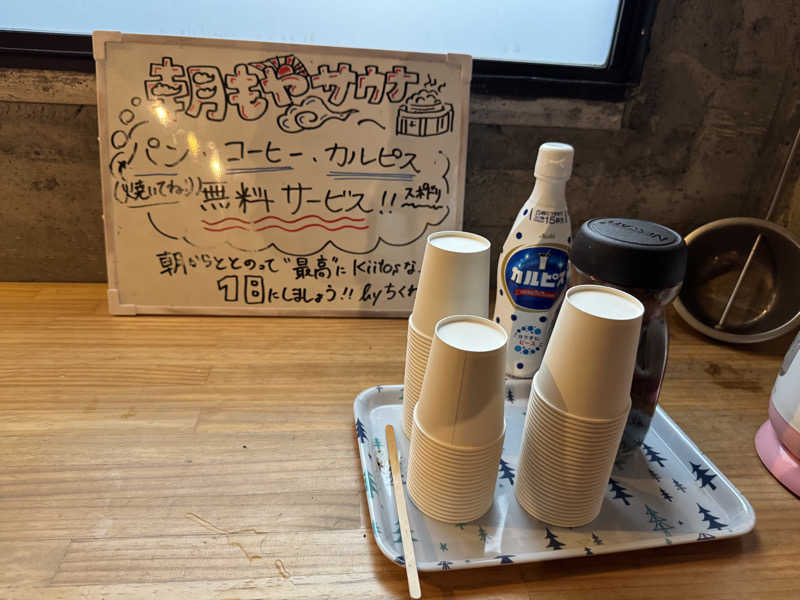 朝もやサウナ
パン、コーヒー、カルピス
(焼いてね♪) 無料サービス!! スポドリ
朝からととのって"最高"にKiitosな
1日にしましょう!! by ちくわ
カルピス